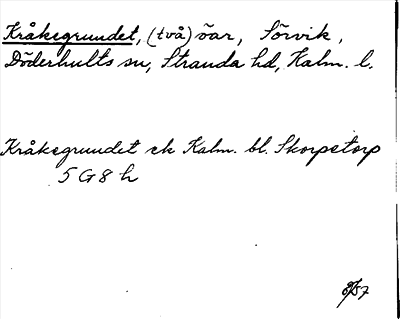 Kråkegrundet, (två) öar, Sörvik,
Döderhults sn, Stranda hd, Kalm. l.
Kråkegrundet ek Kalm. bl. Skorpetorp
5 G 8 h